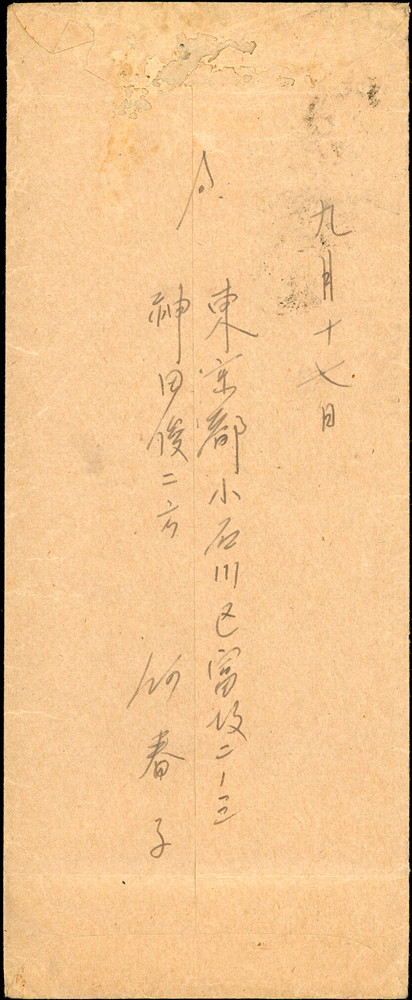 九月十七日
東京都小石川区富坂二ノ三
神田俊二方
春子